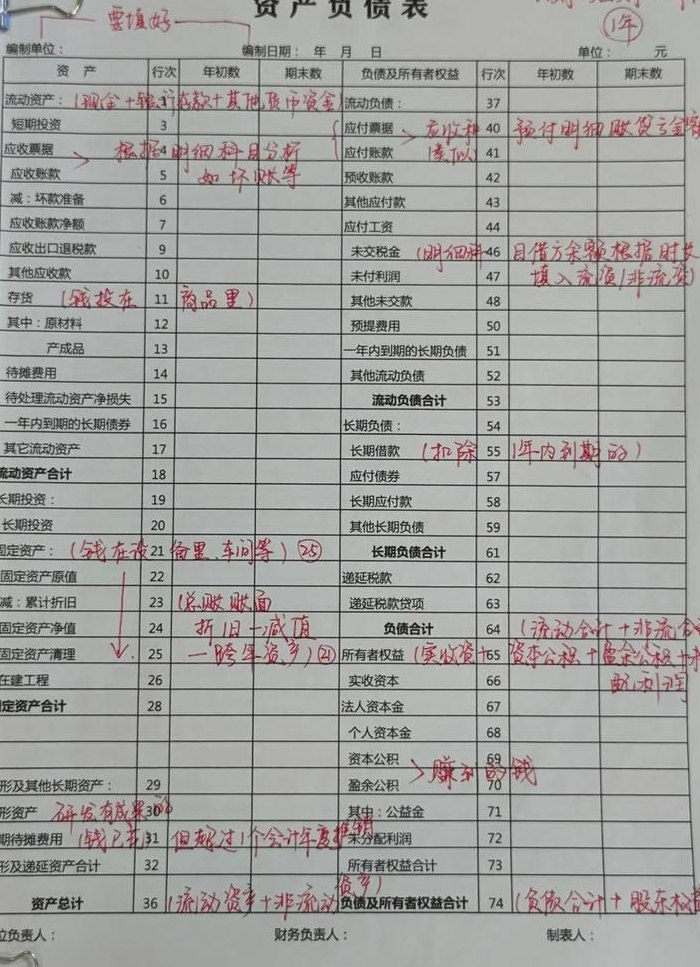 资产负债表
要填好
1年
编制单位： 编制日期： 年 月 日 单位： 元
资 产 行次 年初数 期末数 负债及所有者权益 行次 年初数 期末数
流动资产： (现金+银行存款+其他货币资金) 流动负债： 37
短期投资 3 应付票据 40 预付明细账贷方金额
应收票据 4 根据明细科目分析 应付账款 (类似) 41
应收账款 5 如坏账等 预收账款 42
减：坏款准备 6 其他应付款 43
应收账款净额 7 应付工资 44
应收出口退税款 9 未交税金 (明细科 46 目借方余额根据时长
其他应收款 10 未付利润 47 填入流资/非流资)
存货 (钱投在 11 商品里) 其他未交款 48
其中：原材料 12 预提费用 50
产成品 13 一年内到期的长期负债 51
待摊费用 14 其他流动负债 52
待处理流动资产净损失 15 流动负债合计 53
一年内到期的长期债券 16 长期负债： 54
其它流动资产 17 长期借款 (扣除 55 1年内到期的)
流动资产合计 18 应付债券 57
长期投资： 19 长期应付款 58
长期投资 20 其他长期负债 59
固定资产： (钱在设 21 备里、车间等) 25 长期负债合计 61
固定资产原值 22 递延税款 62
减：累计折旧 23 (总账账面 递延税款贷项 63
固定资产净值 24 折旧-减值 负债合计 64 (流动合计+非流合
固定资产清理 25 一跨年资产) 21 所有者权益 (实收资+ 65 资本公积+盈余公积+未
在建工程 26 实收资本 66 配利润
固定资产合计 28 法人资本金 67
个人资本金 68
资本公积 69
形及其他长期资产： 29 盈余公积 70 赚到的钱
形资产 研发有成果的 30 其中：公益金 71
期待摊费用 (钱已花) 31 但超过1个会计年度摊销 未分配利润 72
形及递延资产合计 32 所有者权益合计 73
资产总计 36 (流动资产+非流动资产) 负债及所有者权益合计 74 (负债合计+股东权益
位负责人： 财务负责人： 制表人：